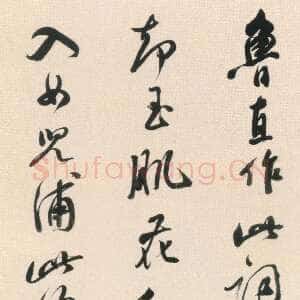 魯直作此詞
却玉肌花
入女兒浦此
Shufawang.CN